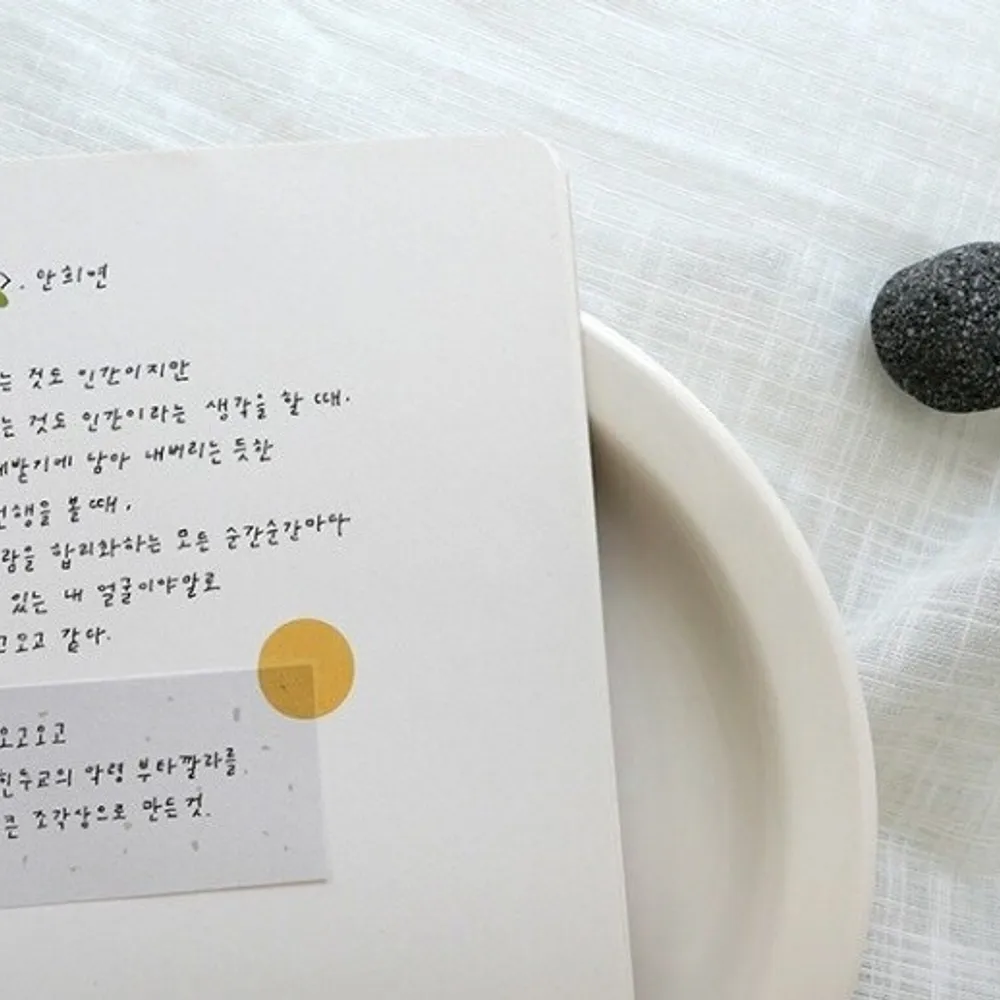 >. 안희연
는 것도 인간이지만
는 것도 인간이라는 생각을 할 때.
세발기에 남아 내버리는 듯한
선행을 볼 때,
람을 합리화하는 모든 순간순간마다
있는 내 얼굴이야말로
고오고 같다.
오고오고
힌두교의 악령 부타깔라를
큰 조각상으로 만든 것.